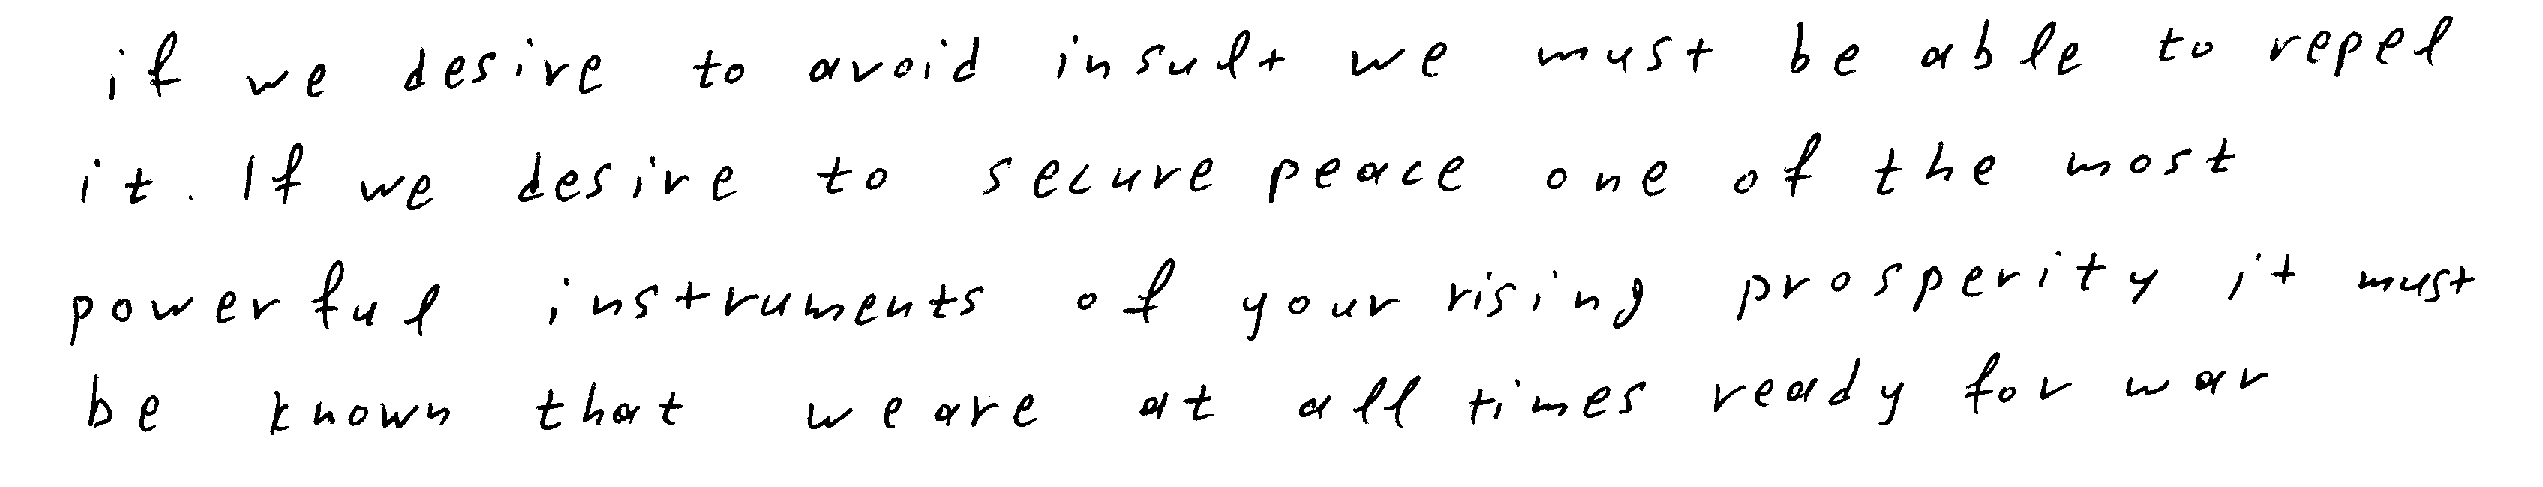 if we desire to avoid insult we must be able to repel
it. If we desire to secure peace one of the most
powerful instruments of your rising prosperity it must
be known that we are at all times ready for war